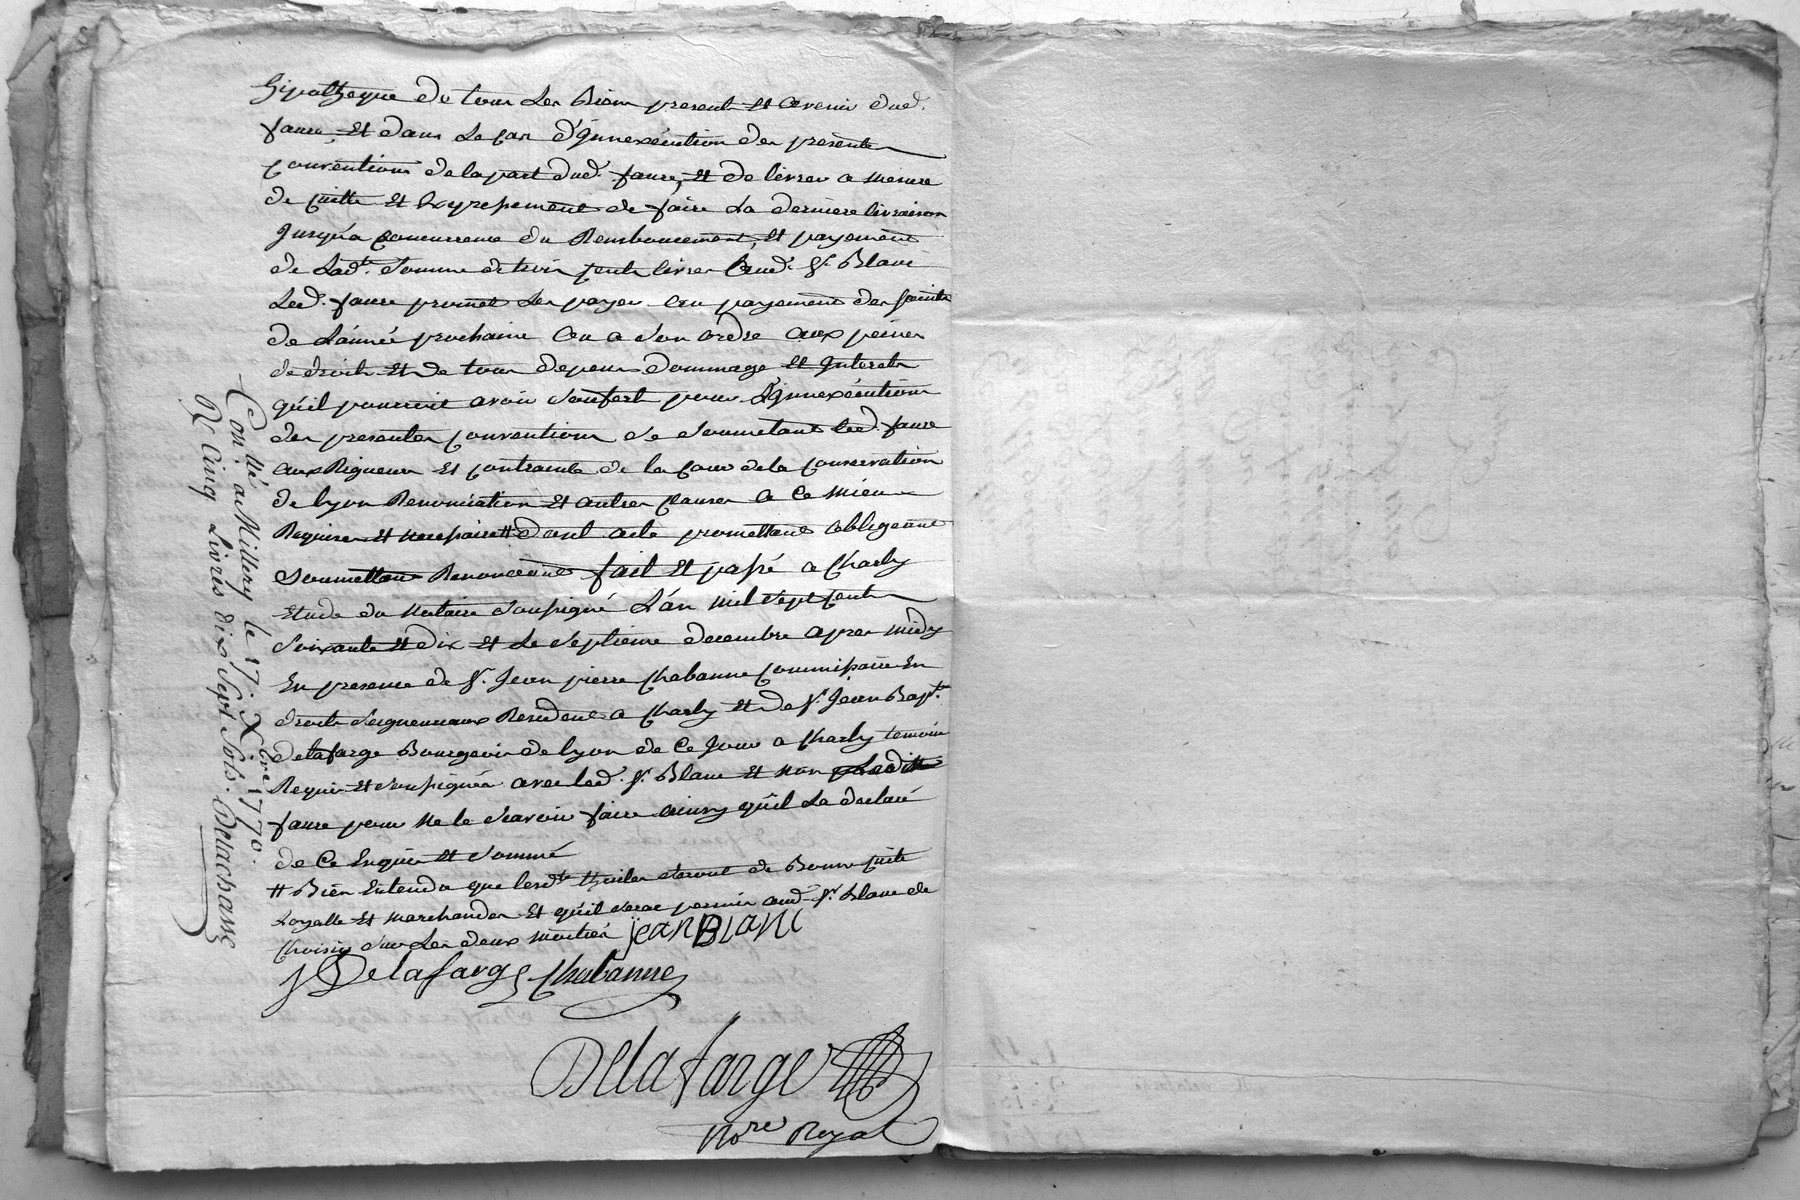 hipotheque de tous les Biens presents et avenir dud.
faure, et dans Le Cas d'Innexécution des presentes
Conventions de la part dud. faure, et de livrer a mesure
de Cuitte et Expressement de faire La derniere livraison
Jusqu'a Concurrence du Remboursement, et payement
de Lad.te Somme de trois Cents livres Aud. Sr. Blanc
Led. faure promet Les payer aux payements des saints
de L'année prochaine ou a Son ordre aux peines
de droits et de tous depens dommage et Interets
qu'il pourroit avoir Soufert pour L'Innexécution
des presentes Conventions Se Soumetant led. faure
aux Rigueurs et Contrainte de la Cour de la Conservation
de lyon Renonciation et autres Clauses a Ce mieux
Requises et necessaires # dont acte promettant obligeant
Soumettant Renonceant fait et passé a Charly
Etude du Notaire Soussigné L'an mil Sept Cents
Soixante et dix et Le Septieme decembre apres midy
En presence de Sr. Jean pierre Chabanne Commissaire En
droits Seigneuriaux Resident a Charly et de Sr. Jean Bap.te
delafarge Bourgeois de lyon de Ce Jour a Charly temoins
Requis et Soussignés avec led. Sr. Blanc et Non Ledit
faure pour Ne le Scavoir faire ainsy qu'il La declaré
de Ce Enquis et Sommé
# Bien Entendu que lesd.tes thuiles Seront de Bonne Cuite
Loyalle et marchandes et qu'il Sera permis aud. Sr. Blanc de
Choisir Sur Les deux moitiés jean Blanc
J Delafarge Chabanne
Delafarge
No.re Royal
Con.llé a Millery le 17. Xbre 1770.
R. Cinq Livres dix Sept Sols. Delachasse